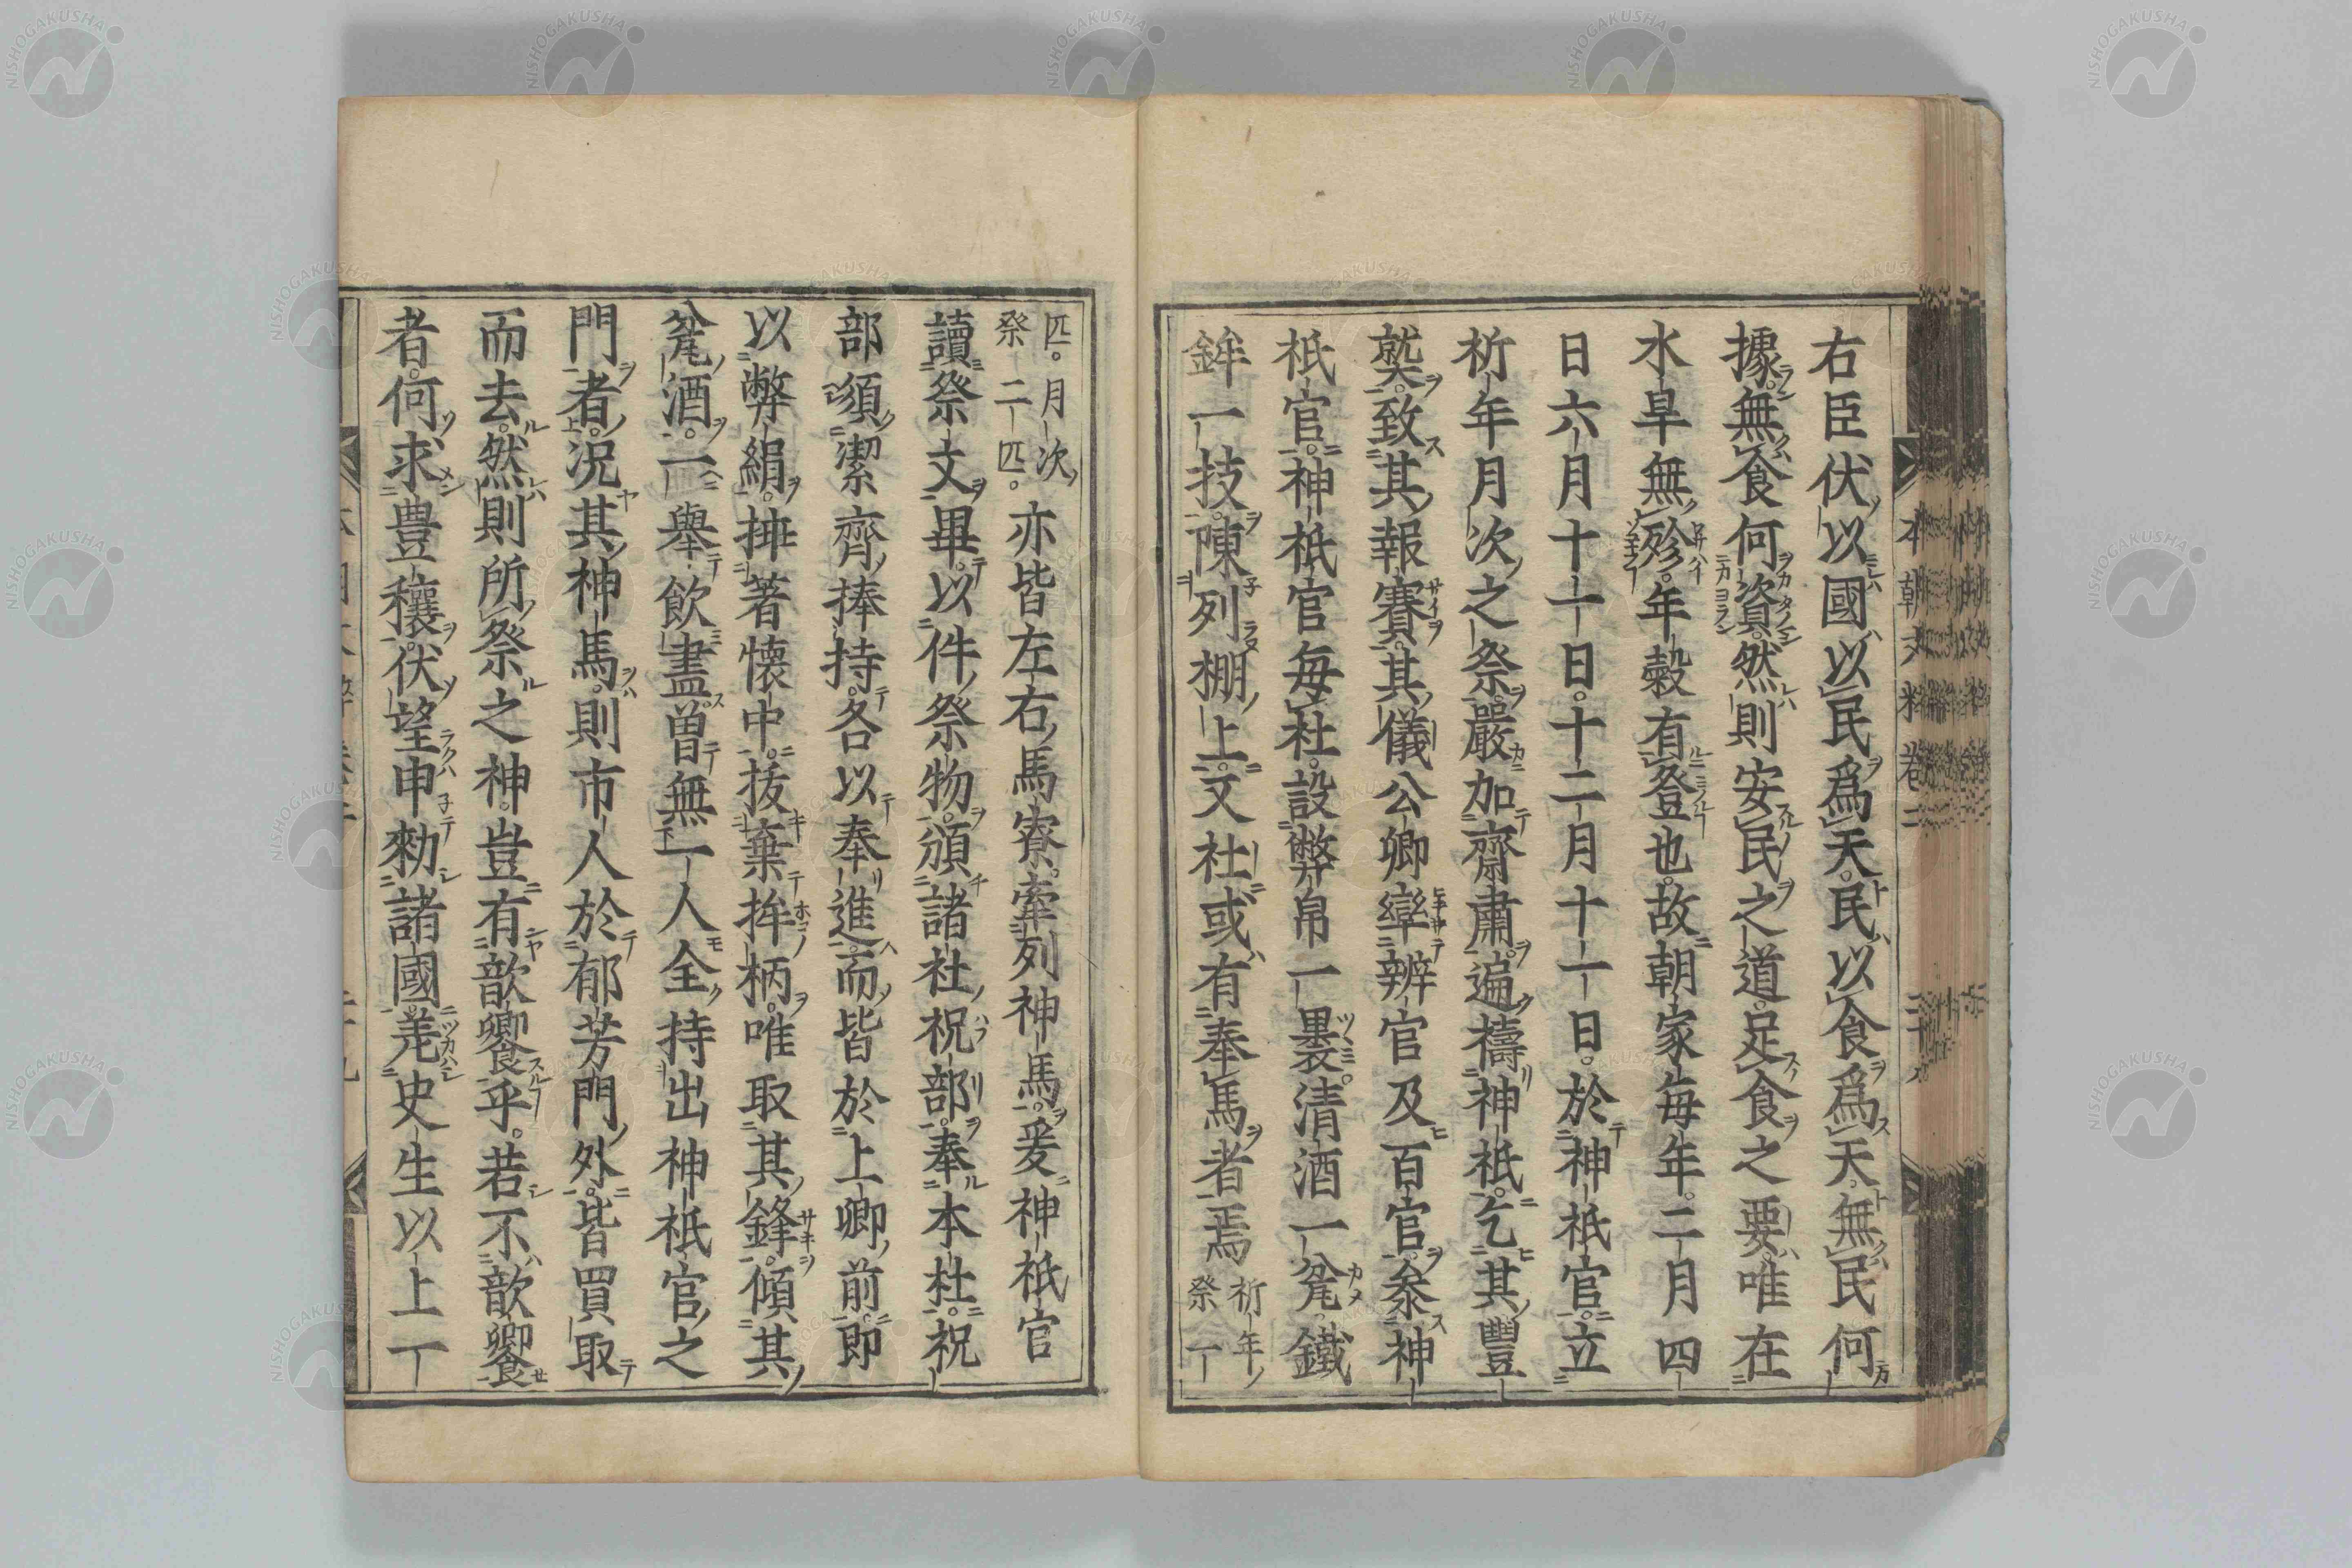 右臣伏以國以民爲天民以食爲天無民何
據無食何資然則安民之道足食之要唯在
水旱無殄年穀有登也故朝家毎年二月四
日六月十一日十二月十一日於神祇官立
祈年月次之祭嚴加齋肅遍禱神祇乞其豐
熟致其報賽其儀公卿率辨官及百官參神
祇官神祇官毎社設幣帛一裹清酒一瓮鐵
鉾一技陳列棚上又社或有奉馬者焉祈年祭一
匹。月次祭二匹。亦皆左右馬寮牽列神馬爰神祇官
讀祭文畢以件祭物頒諸社祝部奉本社祝
部須潔齊捧持各以奉進而皆於上卿前即
以幣絹挿著懐中抜棄桙柄唯取其鋒傾其
瓮酒一擧飲盡曽無一人全持出神祇官之
門者況其神馬則市人於郁芳門外皆買取
而去然則所祭之神豈有歆饗乎若不歆饗
者何求豊穰伏望申勅諸國差史生以上一
本朝文粋巻二
NISHOGAKUSHA